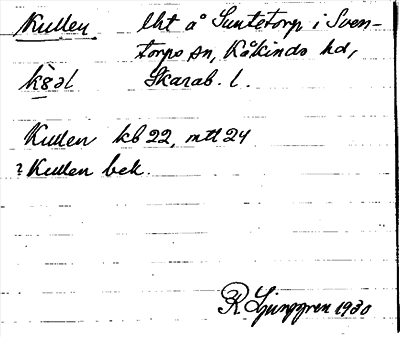 Kullen lht å Suntetorp i Sven-
torps sn, Kåkinds hd,
Skarab. l.
Kullen kb 22, mtl 24
? Kullen bek.
R Ljunggren 1930